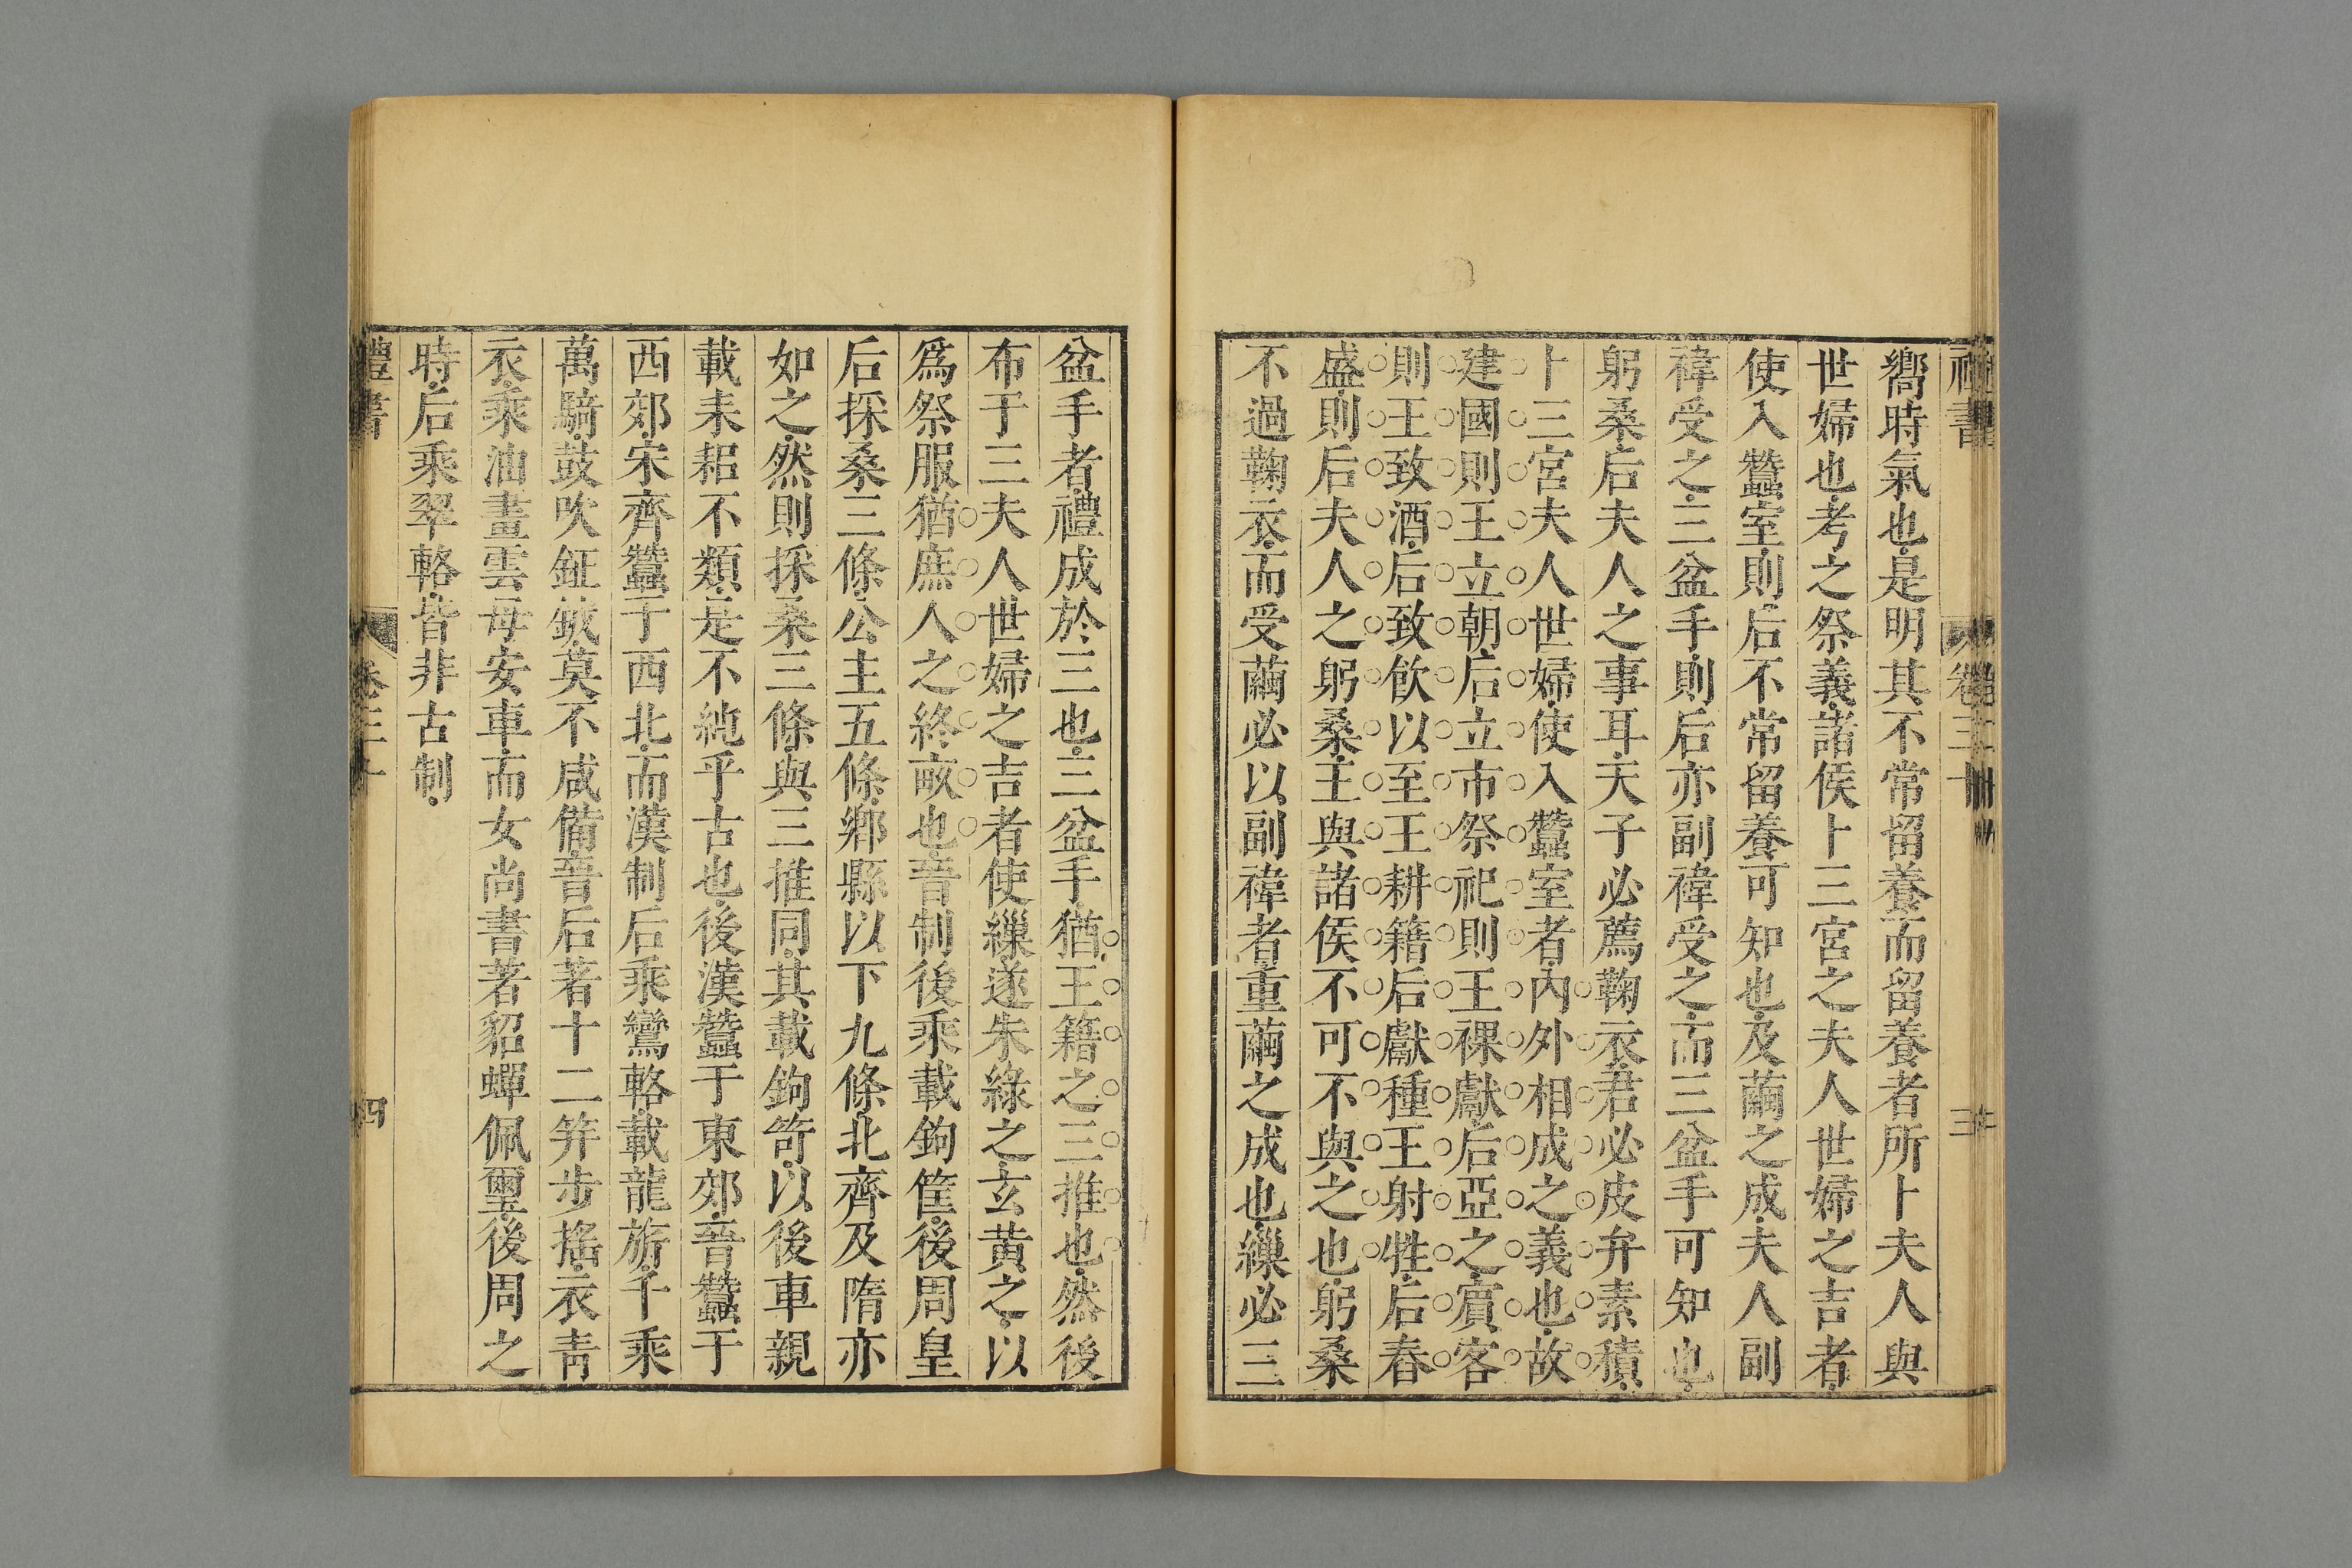 嚮時氣也是明其不常留養而留養者所卜夫人與
世婦也考之祭義諸侯卜三宮之夫人世婦之吉者
使入蠶室則后不常留養可知也及繭之成夫人副
褘受之三盆手則后亦副褘受之而三盆手可知也
躬桑后夫人之事耳天子必薦鞠衣君必皮弁素積
卜三宮夫人世婦使入蠶室者內外相成之義也故
建國則王立朝后立市祭祀則王祼獻后亞之賓客
則王致酒后致飲以至王耕籍后獻種王射牲后舂
盛則后夫人之躬桑王與諸侯不可不與之也躬桑
不過鞠衣而受繭必以副褘者重繭之成也繅必三
盆手者禮成於三也三盆手猶王籍之三推也然後
布于三夫人世婦之吉者使繅遂朱綠之玄黃之以
爲祭服猶庶人之終畝也晉制後乘載鉤筐後周皇
后採桑三條公主五條鄉縣以下九條北齊及隋亦
如之然則採桑三條與三推同其載鉤笱以後車親
載耒耜不類是不純乎古也後漢蠶于東郊晉蠶于
西郊宋齊蠶于西北而漢制后乘鸞輅載龍旂千乘
萬騎鼓吹鉦鉞莫不咸備晉后著十二笄步搖衣靑
衣乘油畫雲母安車而女尚書著貂蟬佩璽後周之
時后乘翠輅皆非古制
禮書 卷三十 四